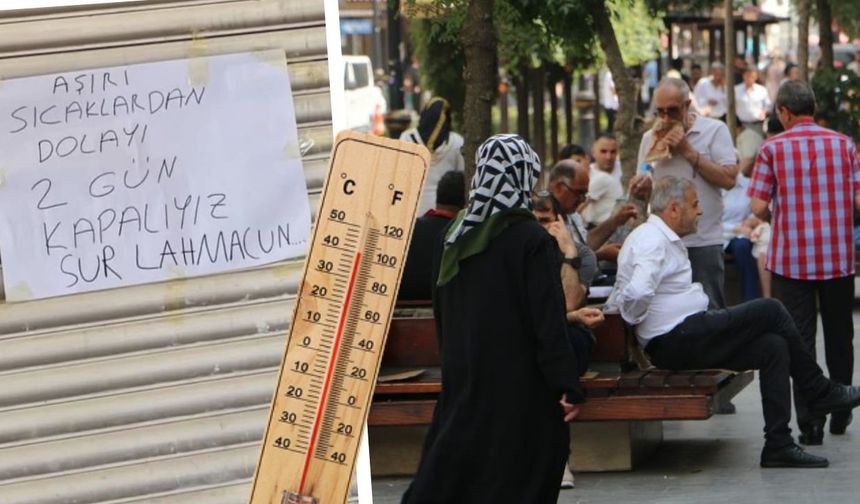 AŞIRI
SICAKLARDAN
DOLAYI
2 GÜN
KAPALIYIZ
SUR LAHMACUN...
°C °F
50 120
40 100
30 80
20 60
10 40
0 20
10 0
20 20
30 40
40